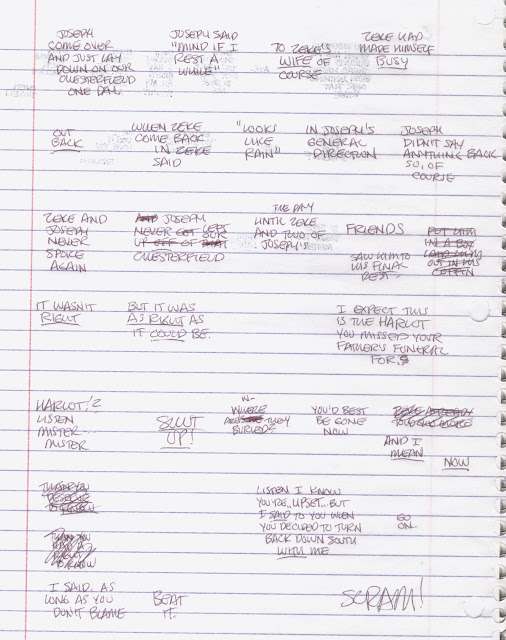 JOSEPH
COME OVER
AND JUST LAY
DOWN ON OUR
CHESTERFIELD
ONE DAY.
JOSEPH SAID
"MIND IF I
REST A
WHILE"
TO ZEKE'S
WIFE OF
COURSE
ZEKE HAD
MADE HIMSELF
BUSY
OUT
BACK
WHEN ZEKE
COME BACK
IN ZEKE
SAID
"LOOKS
LIKE
RAIN"
IN JOSEPH'S
GENERAL
DIRECTION
JOSEPH
DIDN'T SAY
ANYTHING BACK
SO, OF
COURSE
ZEKE AND
JOSEPH
NEVER
SPOKE
AGAIN
AND JOSEPH
NEVER GOT LEFT
UP OFF OF THAT OUR
CHESTERFIELD
THE DAY
UNTIL ZEKE
AND TWO OF
JOSEPH'S
FRIENDS
SAW HIM TO
HIS FINAL
REST.
PUT HIM
IN A BOX
LAID HIM
OUT IN HIS
COFFIN
IT WASN'T
RIGHT
BUT IT WAS
AS RIGHT AS
IT COULD BE.
I EXPECT THIS
IS THE HARLOT
YOU MISSED YOUR
FATHER'S FUNERAL
FOR.
HARLOT!?
LISTEN
MISTER
MISTER
SHUT
UP!
W-
WHERE
THEY
BURIED
YOU'D BEST
BE GONE
NOW
AND I
MEAN
NOW
THANK YOU
LISTEN I KNOW
YOU'RE.. UPSET.. BUT
I SAID TO YOU WHEN
YOU DECIDED TO TURN
BACK DOWN SOUTH
WITH ME
GO
ON.
I SAID. AS
LONG AS YOU
DON'T BLAME
BEAT
IT.
SCRAM!